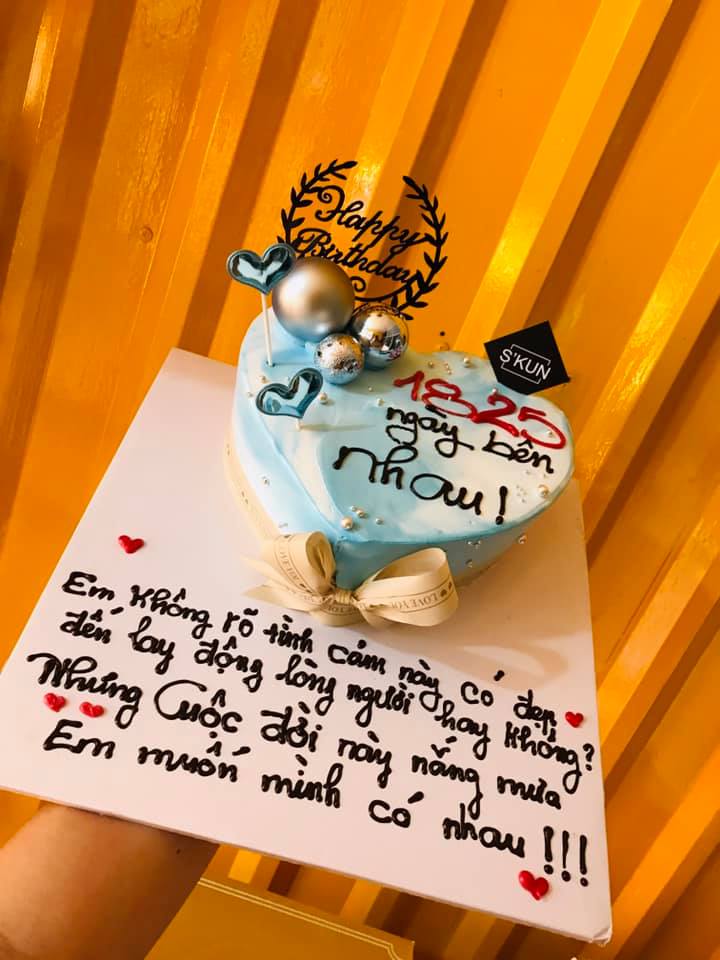 Happy
Birthday
S'KUN
1825
ngày bên
nhau!
Em không rõ tình cảm này có đẹp
đến lay động lòng người hay không?
Nhưng Cuộc đời này nắng mưa
Em muốn mình có nhau !!!